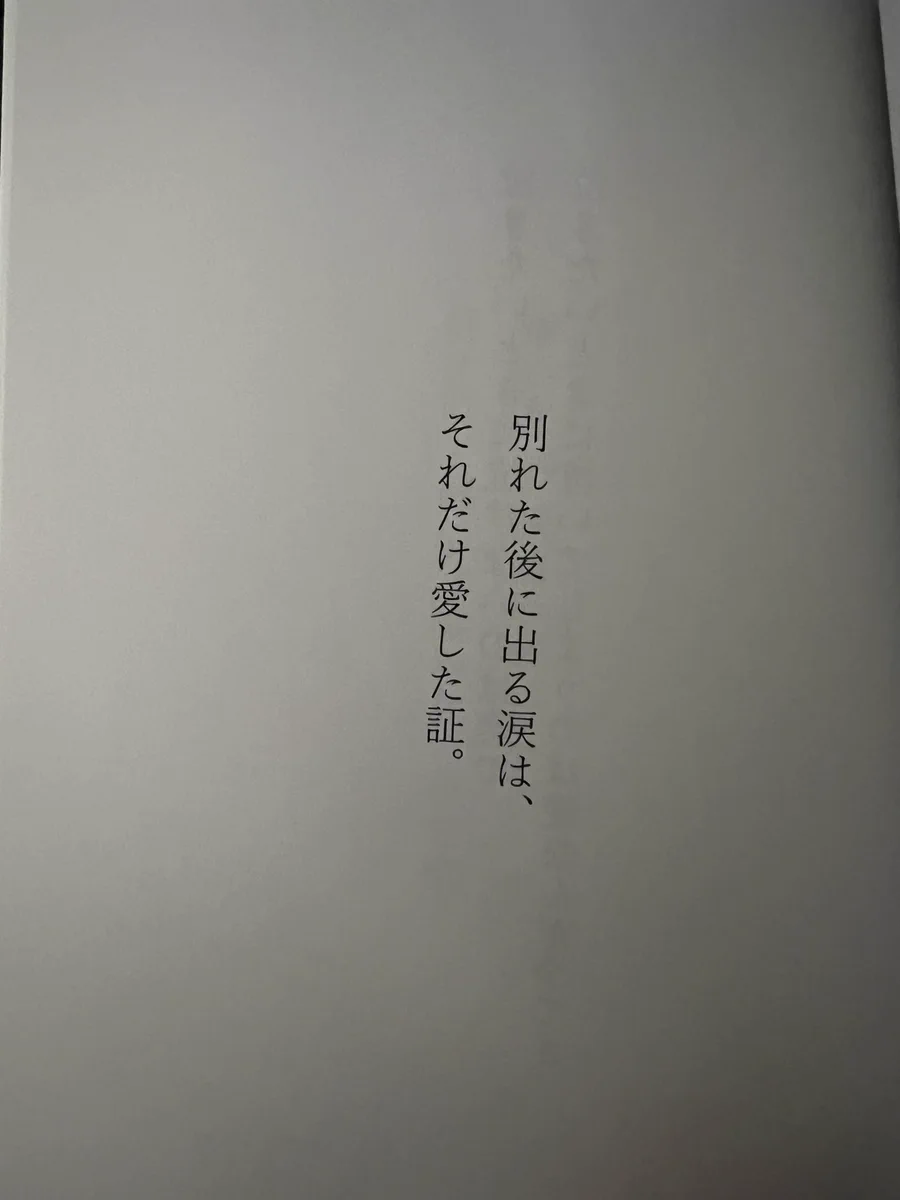 別れた後に出る涙は、
それだけ愛した証。